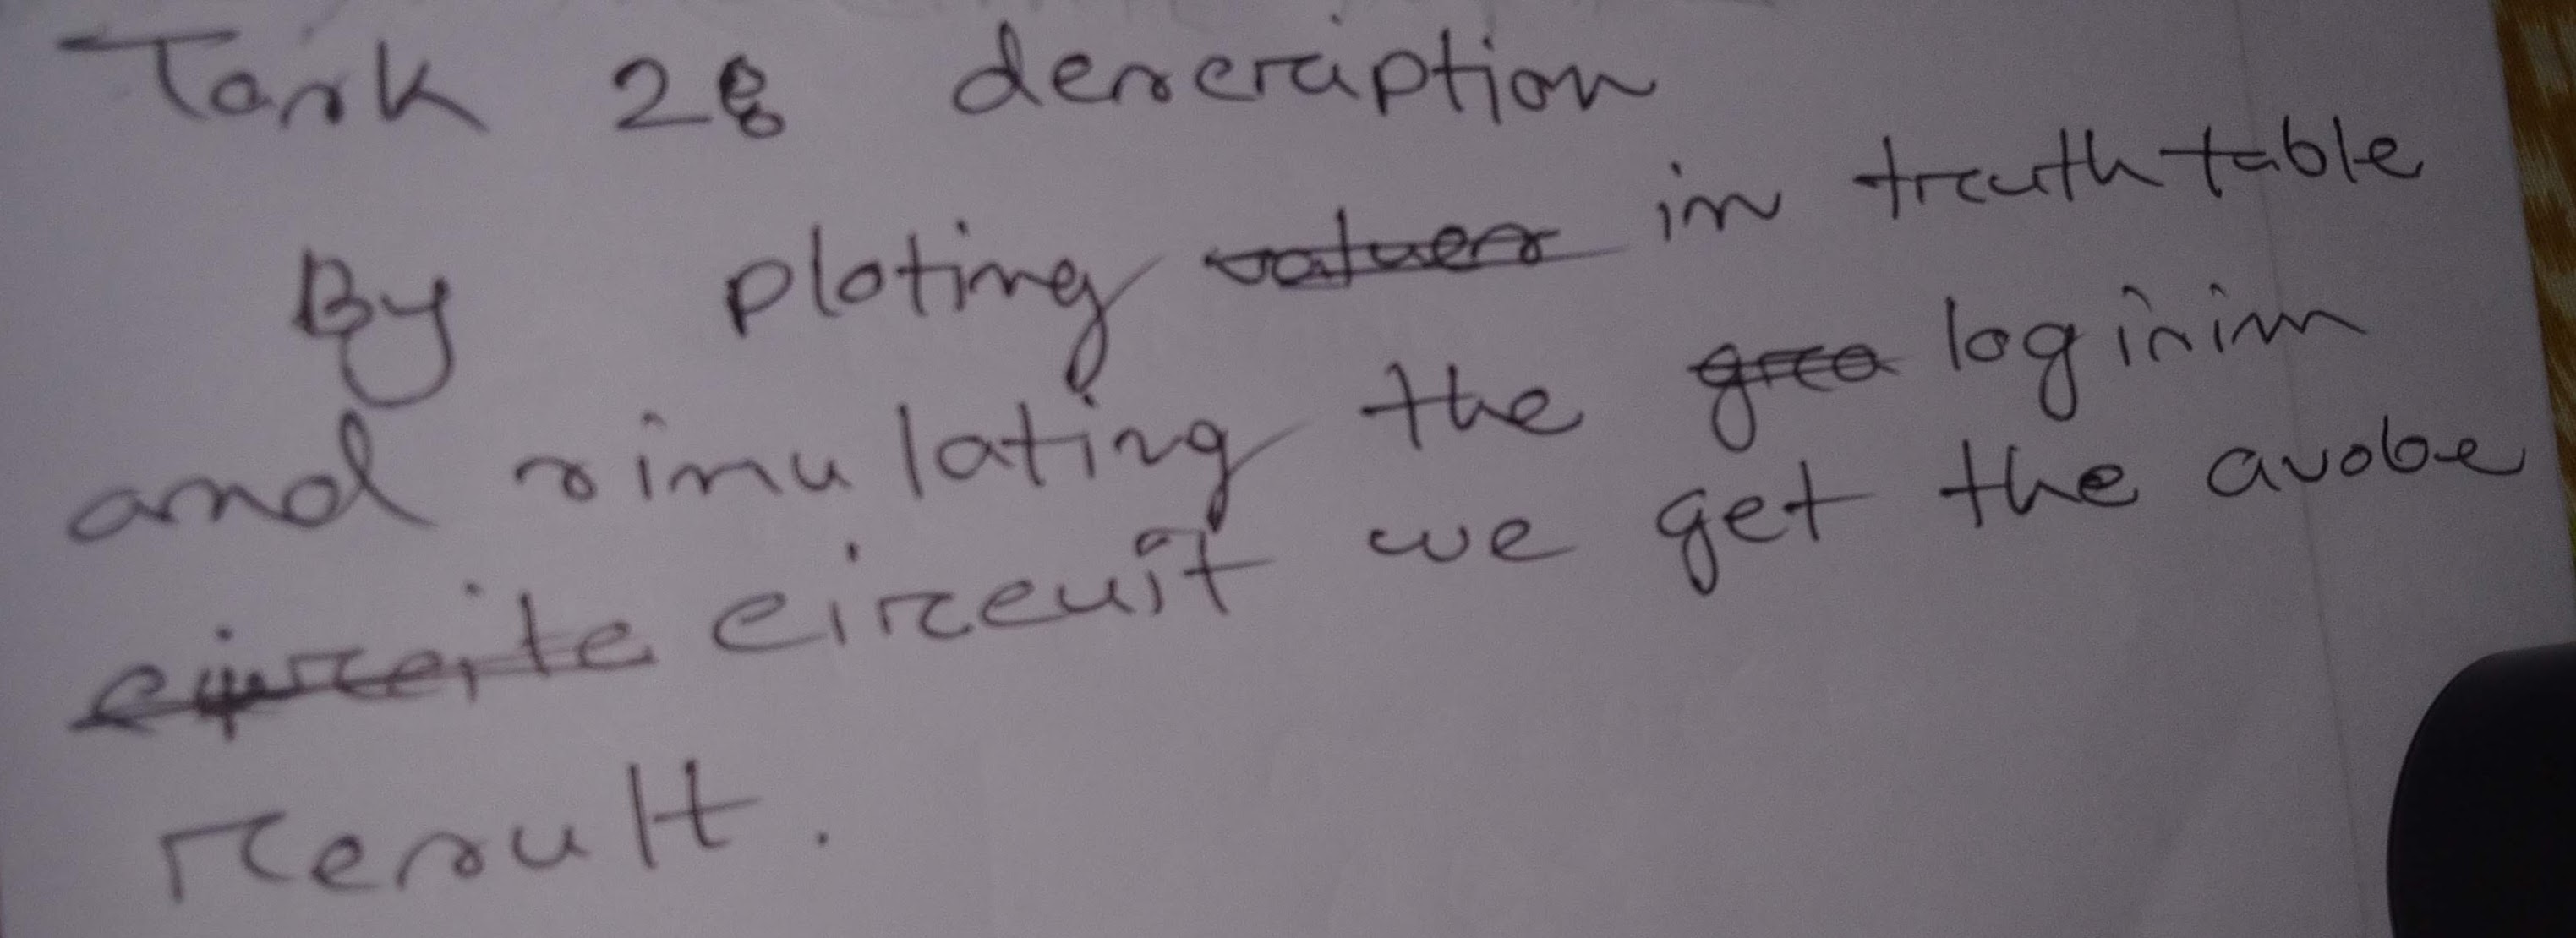 Task 2: description
By ploting values in truth table
and simulating the gra logisim
circuite circuit we get the avobe
result.